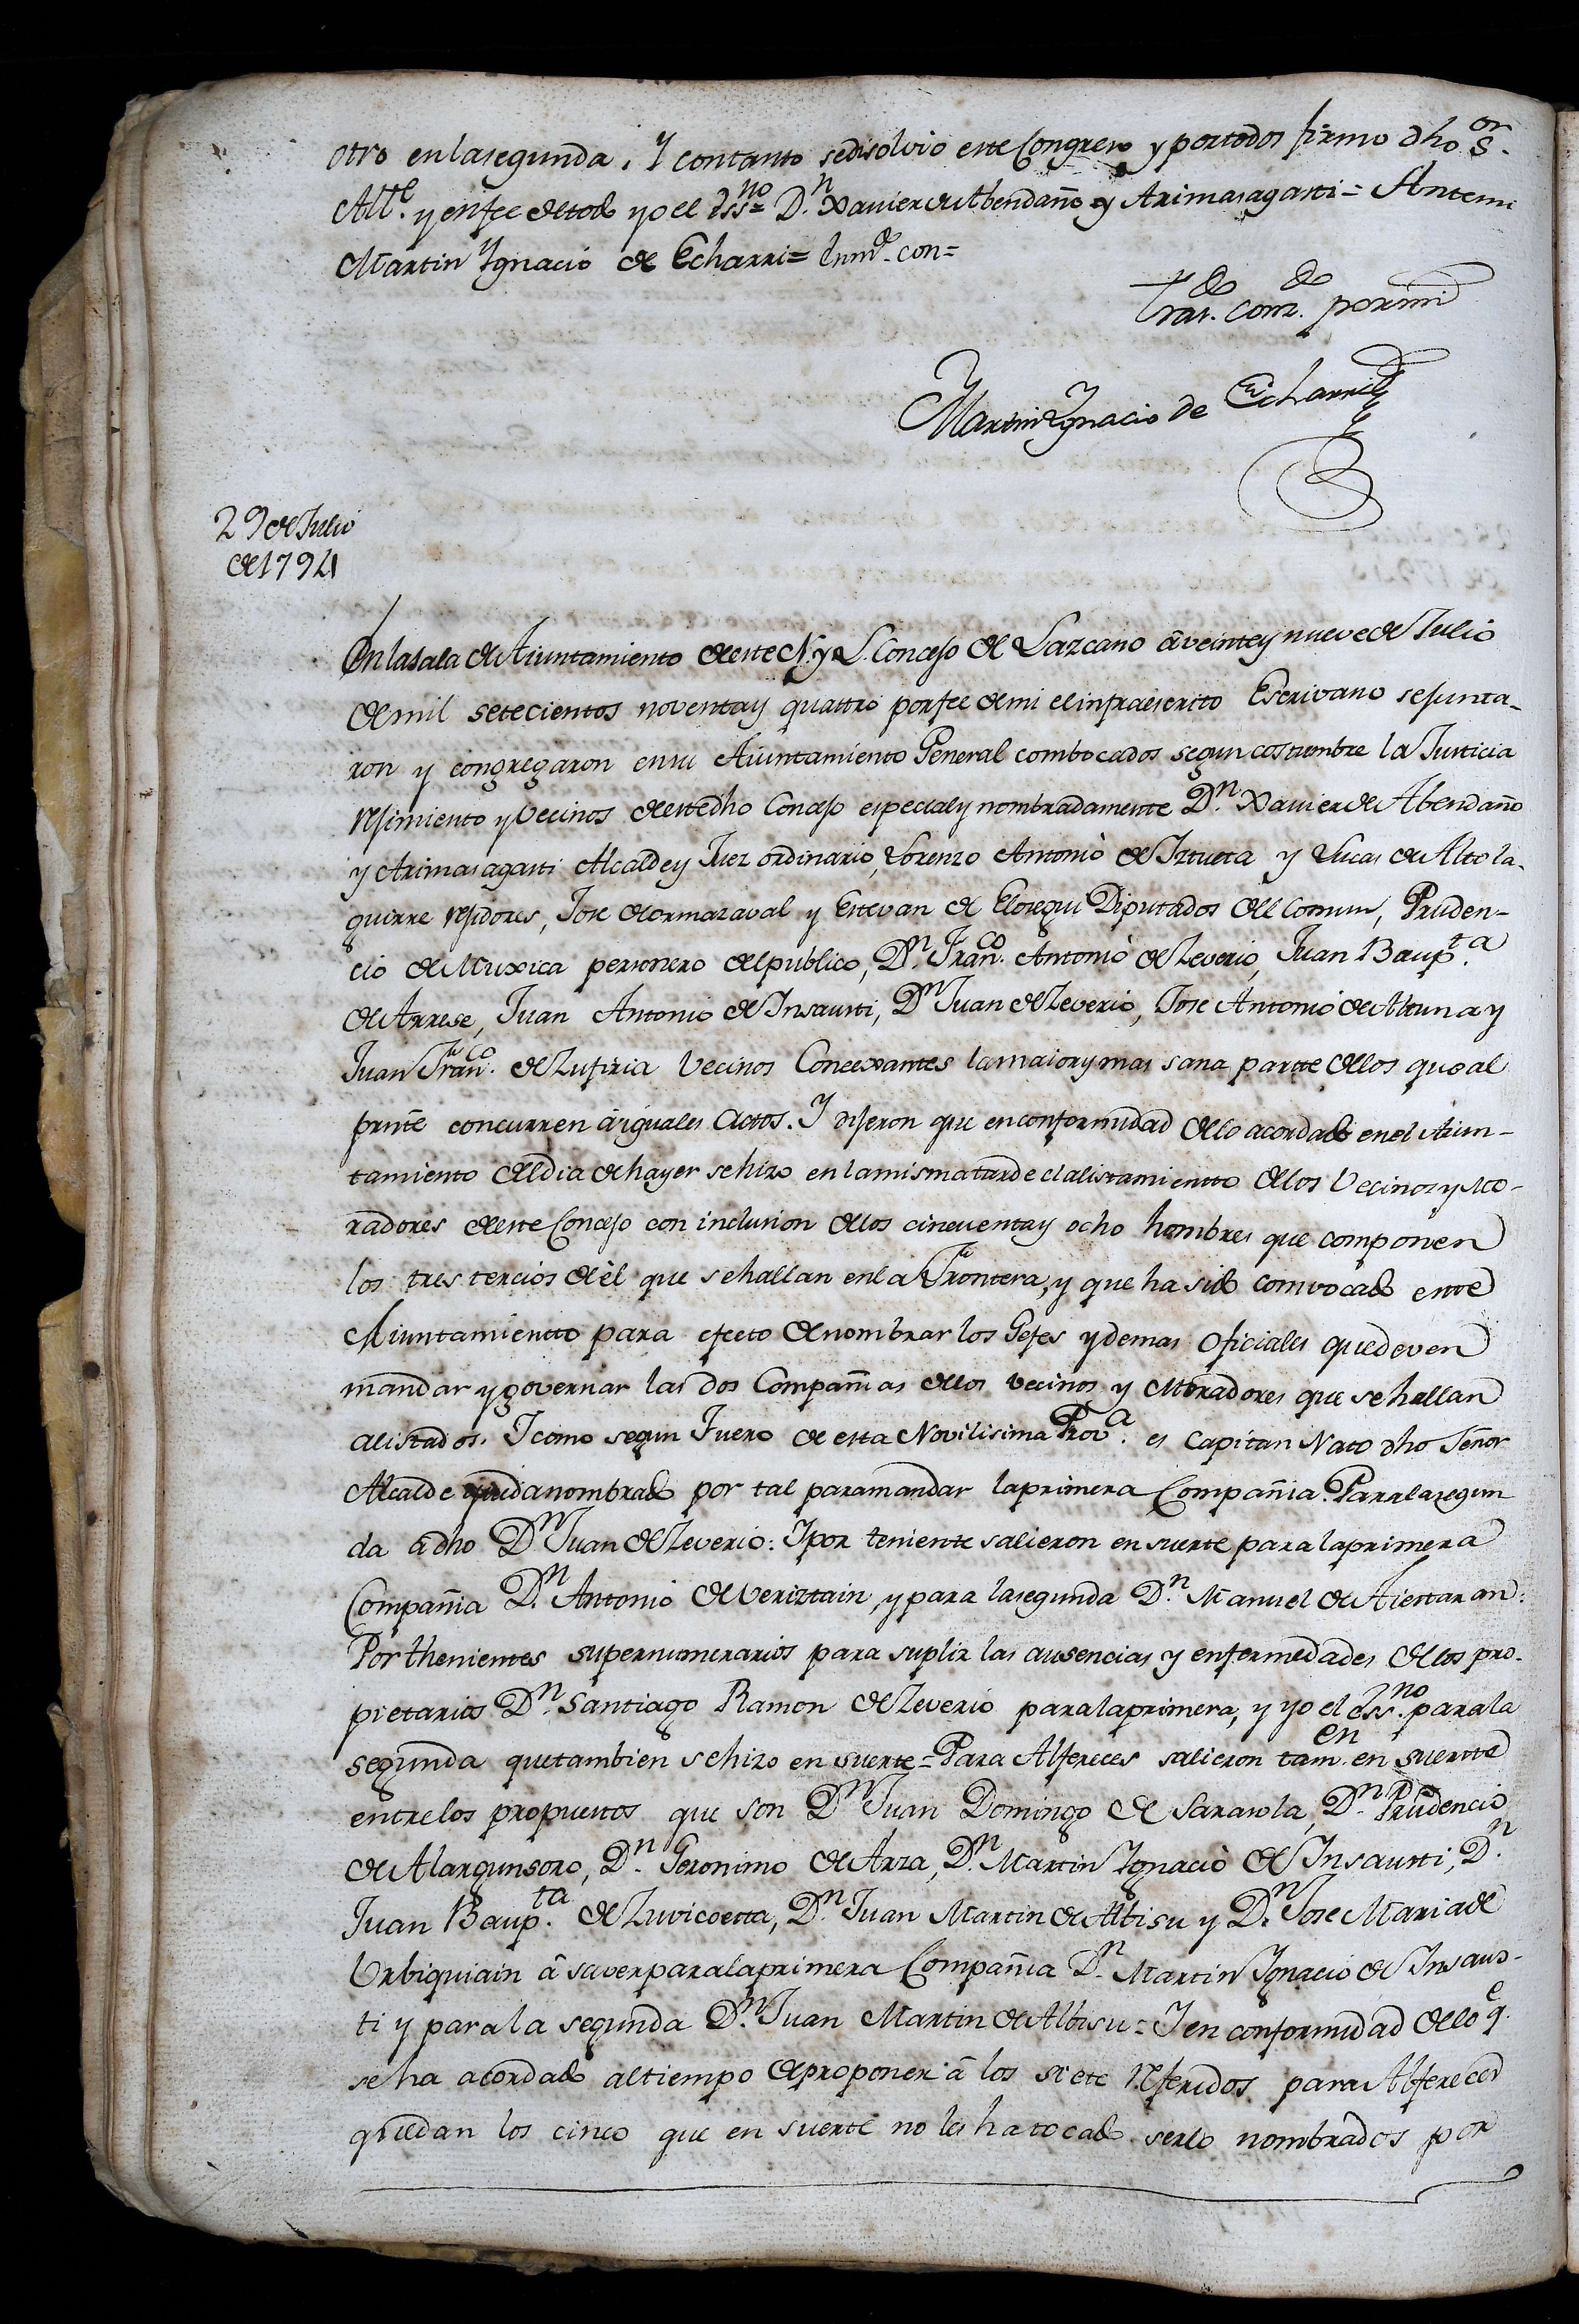 otro en la segunda. Y con tanto se disolvio este Congreso y por todos firmo dho S.or
Alc.e y en fee de todo yo el Ess.no = D.n Xavier de Abendaño y Arimasagasti = Antemi
Martin Ygnacio de Echarri = Enm.do con =
Tras.do Con.do por mi
Martin Ygnacio de Echarri
29 de Julio
de 1794
En la sala de Aiuntamiento de este N. y L. Concejo de Lazcano â veinte y nueve de Julio
de mil setecientos noventa y quattro por fee de mi el infraescrito Escrivano se junta-
ron y congregaron en su Aiuntamiento General combocados segun costumbre la Justicia
rejimiento y Vecinos de este dho Concejo especial y nombradamente D.n Xavier de Abendaño
y Arimasagasti Alcalde y Juez ordinario, Lorenzo Antonio de Iztueta y Lucas de Altola-
guirre rejidores, Jose de ormazaval y Estevan de Elosegui Diputados del Comun, Pruden-
cio de Muxica personero del publico, D.n Fran.co Antonio de Zeverio, Juan Baup.ta
de Arrese, Juan Antonio de Insausti, D.n Juan de Zeverio, Jose Antonio de Altuna y
Juan Fran.co de Zufiria Vecinos Concexantes la maior y mas sana partte de los que al
prnte concurren â iguales Actos. Y dijeron que en conformidad de lo acordado en el Aiun-
tamiento del dia de hayer se hizo en la misma tarde el alistamientto de los Vecinos y Mo-
radores de este Concejo con inclusion de los cincuenta y ocho hombres que componen
los tres tercios de èl que se hallan en la Frontera, y que ha sido comvocado este
Aiuntamientto para efecto de nombrar los Gefes y demas Oficiales que deven
mandar y governar las dos Compañias de los vecinos y Moradores que se hallan
alistados. Y como segun Fuero de esta Novilisima Prov.a es Capitan Nato dho Señor
Alcalde queda nombrado por tal para mandar la primera Compañia. Para la segun
da â dho D.n Juan de Zeverio: Y por teniente salieron en suerte para la primera
Compañia D.n Antonio de Veriztain, y para la segunda D.n Manuel de Aiestaran:
Por thenientes supernumerarios para suplir las ausencias y enfermedades de los pro-
pietarios D.n Santiago Ramon de Zeverio para la primera, y yo el Ess.no para la
segunda que tambien se hizo en suerte = Para Alfereces salieron tam.en en suertte
entre los propuestos que son D.n Juan Domingo de Sarasola, D.n Prudencio
de Alargunsoro, D.n Geronimo de Arza, D.n Martin Ygnacio de Insausti, D.n
Juan Baup.ta de Zuvicoetta, D.n Juan Martin de Albisu y D.n Jose Maria de
Urbiquiain â saver para la primera Compañia D.n Martin Ygnacio de Insaus-
ti y para la segunda D.n Juan Martin de Albisu = Y en conformidad de lo q.e
se ha acordado al tiempo de proponer â los siete referidos para Alfereces
quedan los cinco que en suerte no les ha tocado serlo nombrados por